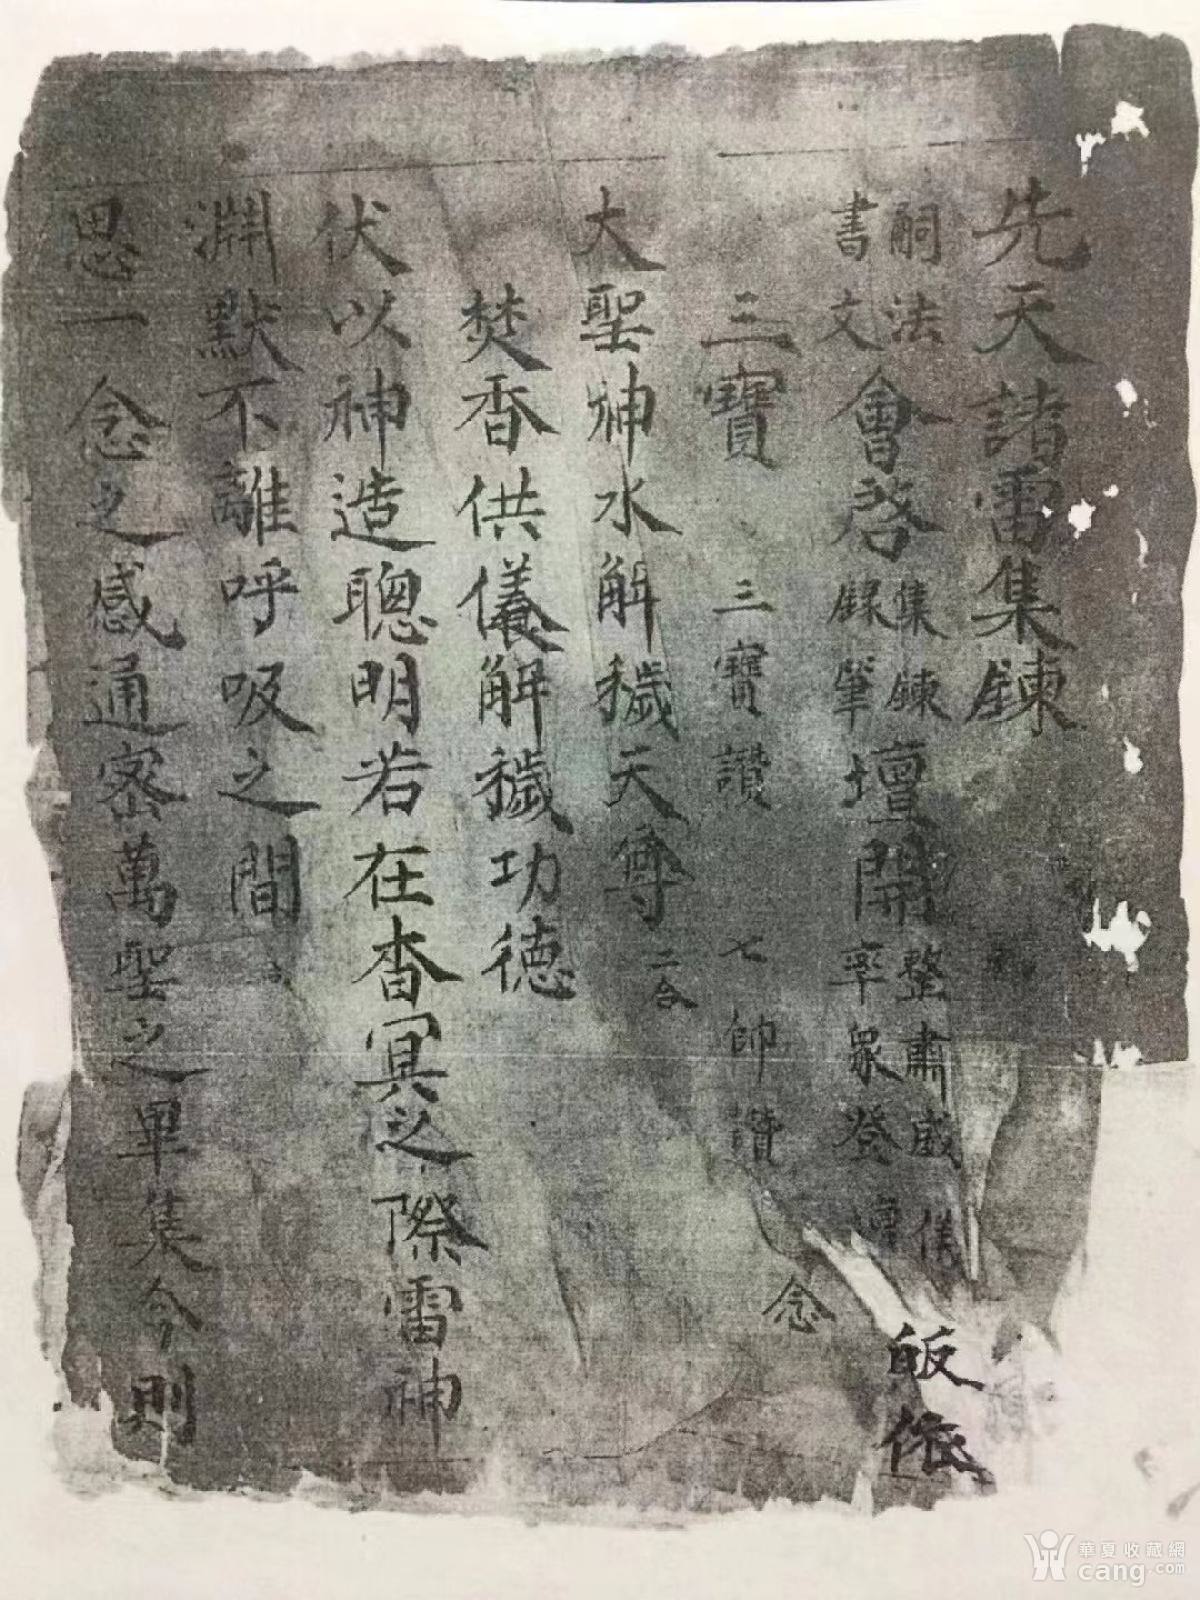 先天諸雷集鍊
嗣法
書文
會啓
集鍊
録肇
壇開
整肅威儀
率眾登壇
皈依
三寶 三寶讚 七帥讚 念
大聖神水解穢天尊 二合
焚香供儀解穢功德
伏以神造聰明若在杳冥之際雷神
淵默不離呼吸之間
恩一念之感通密萬聖之畢集今則
華夏收藏網
cang.com